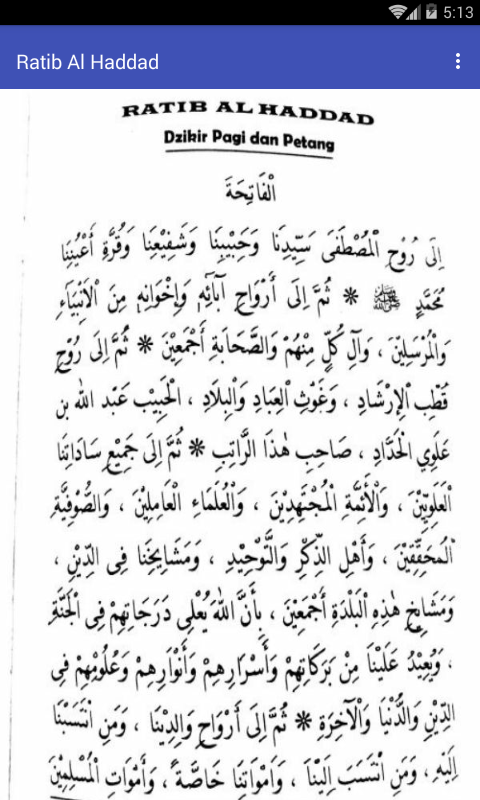 5:13
Ratib Al Haddad
RATIB AL HADDAD
Dzikir Pagi dan Petang
اَلْفَاتِحَةَ
اِلَى رُوْحِ الْمُصْطَفَى سَيِّدِنَا وَحَبِيْبِنَا وَشَفِيْعِنَا وَقُرَّةِ أَعْيُنِنَا
مُحَمَّدٍ ﷺ * ثُمَّ اِلَى أَرْوَاحِ آبَائِهِ وَإِخْوَانِهِ مِنَ الْاَنْبِيَاءِ
وَالْمُرْسَلِيْنَ ، وَآلِ كُلٍّ مِنْهُمْ وَالصَّحَابَةِ أَجْمَعِيْنَ * ثُمَّ اِلَى رُوْحِ
قُطْبِ الْاِرْشَادِ ، وَغَوْثِ الْعِبَادِ وَالْبِلَادِ ، الْحَبِيْبِ عَبْد الله بن
عَلَوِي الْحَدَّادِ ، صَاحِبِ هٰذَا الرَّاتِبِ * ثُمَّ اِلَى جَمِيْعِ سَادَاتِنَا
الْعَلَوِيِّيْنَ ، وَالْأَئِمَّةِ الْمُجْتَهِدِيْنَ ، وَالْعُلَمَاءِ الْعَامِلِيْنَ ، وَالصُّوْفِيَّةِ
الْمُحَقِّقِيْنَ ، وَأَهْلِ الذِّكْرِ وَالتَّوْحِيْدِ ، وَمَشَايِخِنَا فِى الدِّيْنِ ،
وَمَشَايِخِ هٰذِهِ الْبَلْدَةِ أَجْمَعِيْنَ ، بِأَنَّ اللهَ يُعْلِى دَرَجَاتِهِمْ فِى الْجَنَّةِ
، وَيُعِيْدُ عَلَيْنَا مِنْ بَرَكَاتِهِمْ وَأَسْرَارِهِمْ وَأَنْوَارِهِمْ وَعُلُوْمِهِمْ فِى
الدِّيْنِ وَالدُّنْيَا وَالْآخِرَةِ * ثُمَّ اِلَى أَرْوَاحِ وَالِدِيْنَا ، وَمَنِ انْتَسَبْنَا
اِلَيْهِ ، وَمَنِ انْتَسَبَ اِلَيْنَا ، وَاَمْوَاتِنَا خَاصَّةً ، وَأَمْوَاتِ الْمُسْلِمِيْنَ